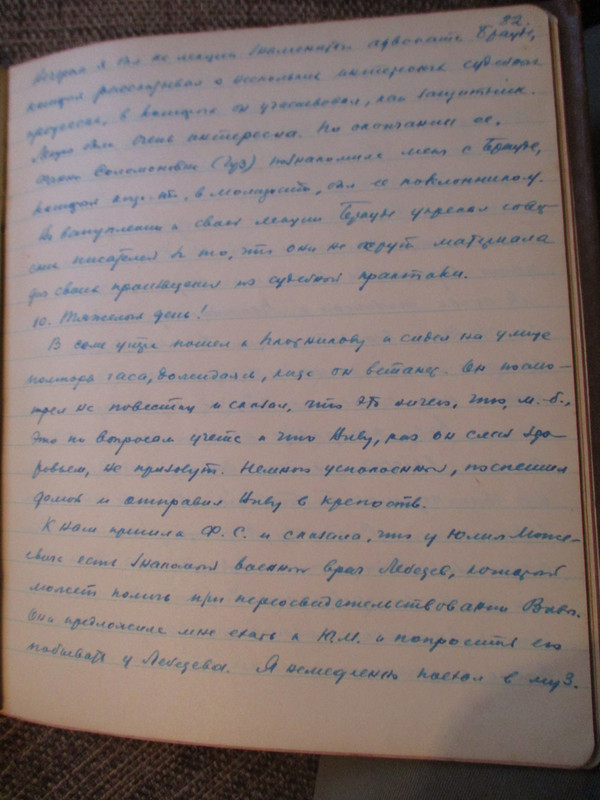 22.
Вечером я был на лекции знаменитого адвоката Брауде,
который рассказывал о нескольких интересных судебных
процессах, в которых он участвовал, как защитник.
Лекция была очень интересна. По окончании ее,
Соломоновна (Гуз) познакомила меня с Брауде,
который когда-то, в молодости, был ее поклонником.
Во вступлении к своей лекции Брауде упрекал совет-
ских писателей за то, что они не берут материала
для своих произведений из судебной практики.
10. Тяжелый день!
В семь утра пошел к и сидел на улице
полтора часа, дожидаясь, когда он встанет. Он посмо-
трел на повестку и сказал, что это ничего, что, м.-б.,
это по вопросам учета и что Виву, раз он слаб здо-
ровьем, не призовут. Немного успокоенный, поспешил
домой и отправил Виву в крепость.
К нам пришла Ф. С. и сказала, что у Юлия Моисе-
евича есть знакомый военный врач Лебедев, который
может помочь при переосвидетельствовании Вивы.
Она предложила мне ехать к Ю.М. и попросить его
побывать у Лебедева. Я немедленно поехал в муз.